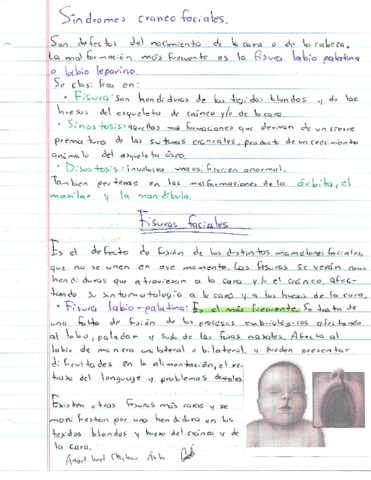 Síndromes craneo faciales.
Son defectos del nacimiento de la cara o de la cabeza.
La malformación más frecuente es la fisura labio palatina
o labio leporino.
Se clasifica en:
• Fisura: son hendiduras de los tejidos blandos y de los
huesos del esqueleto de cráneo y/o de la cara.
• Sinostosis: aquellas malformaciones que derivan de un cierre
prematuro de las suturas craneales, producto de un crecimiento
anómalo del esqueleto óseo.
• Disostosis: involucra una osificación anormal.
Tambien pertenece en las malformaciones de la órbita, el
maxilar y la mandíbula.
Fisuras faciales
Es el defecto de fusión de los distintos mamelones faciales,
que no se unen en ese momento. Las fisuras se verán como
hendiduras que atraviesan a la cara y/o el cráneo, afec-
tando su sintomatología a la cara y a los huesos de la cara.
• Fisura labio-palatina: Es el más frecuente. Se trata de
una falta de fusión de los procesos embriológicos afectando
al labio, paladar y suelo de las fosas nasales. Afecta al
labio de manera unilateral o bilateral, y pueden presentar
dificultades en la alimentación, el re-
traso del lenguaje y problemas dentales.
Existen otras fisuras más raras y se
manifiestan por una hendidura en los
tejidos blandos y hueso del cráneo y de
la cara.